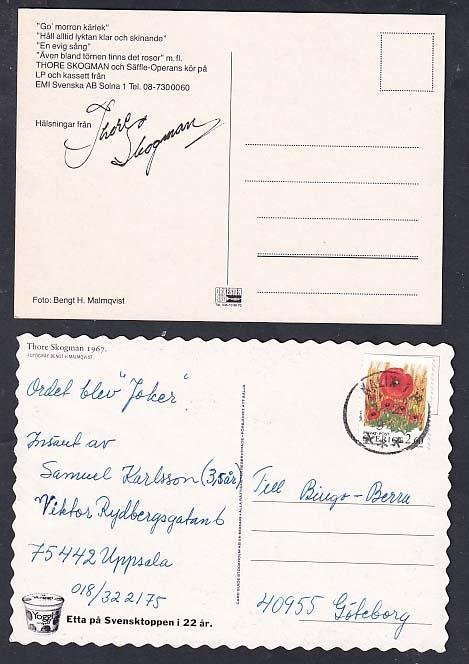 "Go' morron kärlek"
"Håll alltid lyktan klar och skinande"
"En evig sång"
"Även bland törnen finns det rosor" m.fl.
THORE SKOGMAN och Säffle-Operans kör på
LP och kassett från
EMI Svenska AB Solna 1 Tel. 08-7300060
Hälsningar från
Thore
Skogman
Foto: Bengt H. Malmqvist
Thore Skogman 1967.
FOTOGRAF BENGT H MALMQVIST.
Ordet blev "Joker"
Insänt av
Samuel Karlsson (3,5år)
Viktor Rydbergsgatan 6
75442 Uppsala
018/322175
Yoggi
Etta på Svensktoppen i 22 år.
PRIVAT-POST
SVERIGE 2.60
Till Bingo-Berra
40955 Göteborg